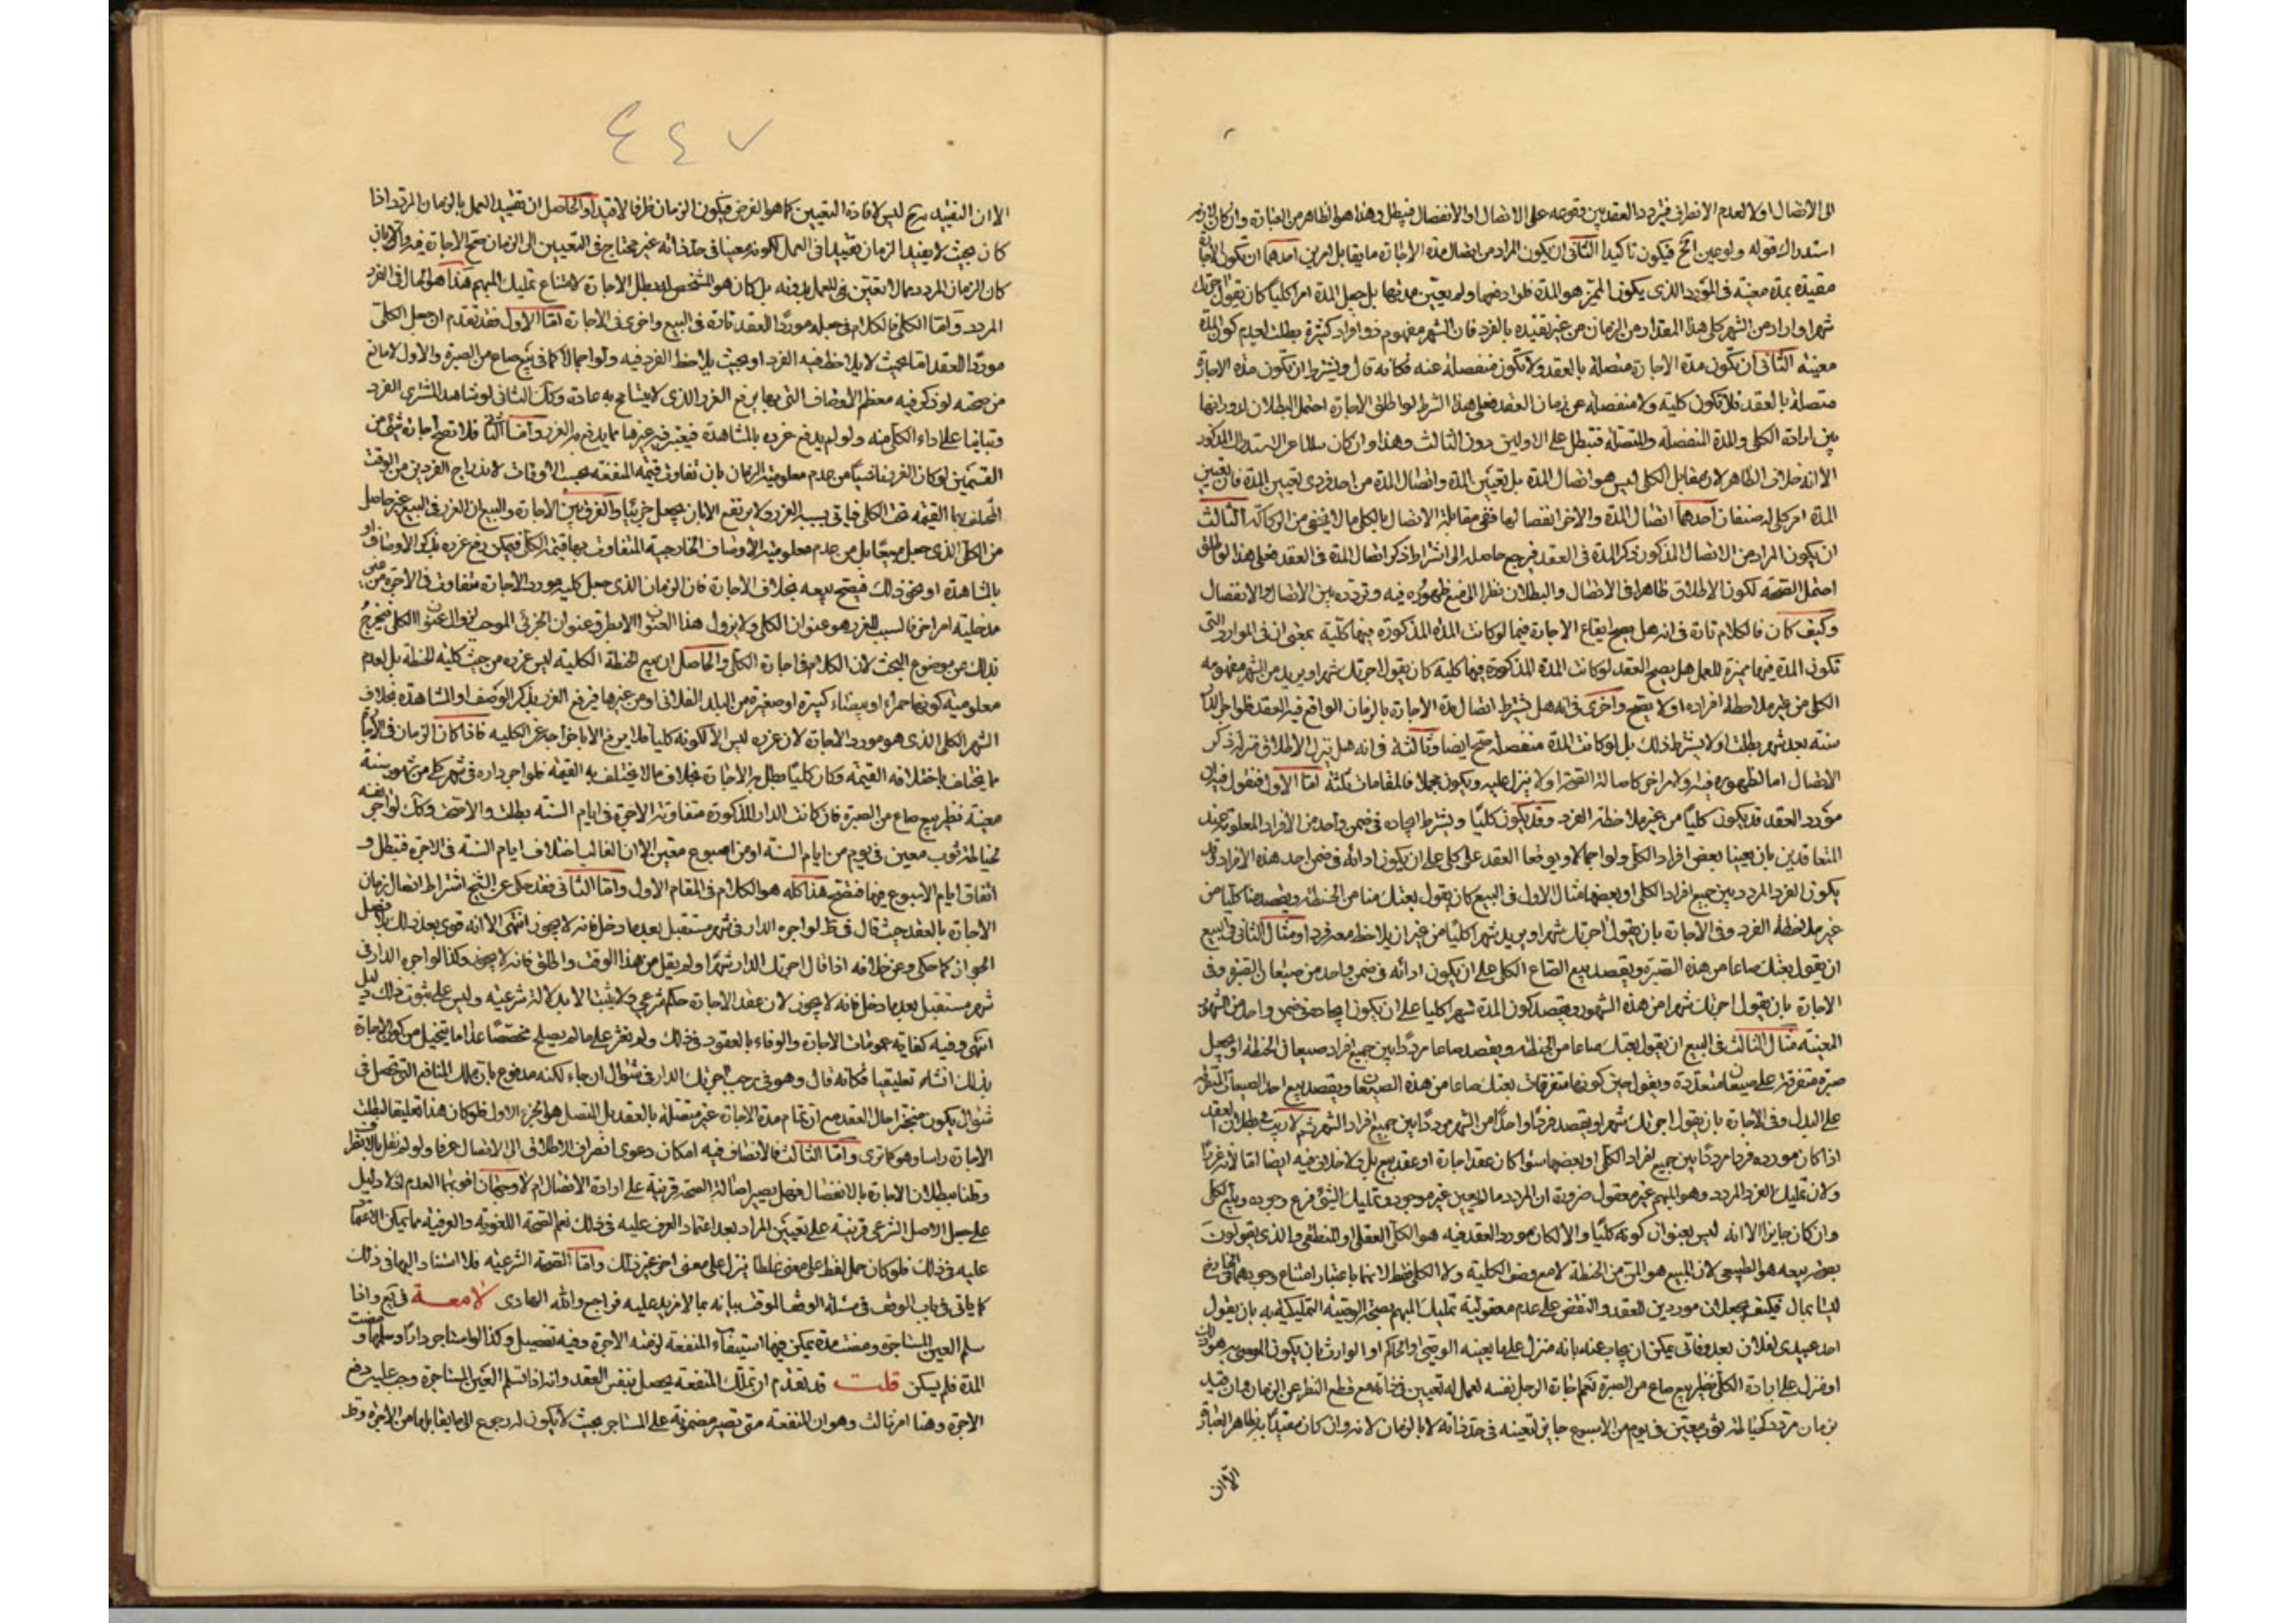 الى الاتصال اولا لعدم الانصراف فيتردد العقد بين وقوعه على الاتصال او الانفصال فيبطل وهذا هو الظاهر من العبارة وان كان
استدراك قوله ولو عين الخ فيكون تاكيدا الثانى ان يكون المراد من اتصال مدة الاجارة ما يقابل امرين احدهما ان تكون الاجارة
مقيدة بمدة معينة فى المورد الذى يكون المميز هو المدة ولم يعين مدتها بل جعل المدة امرا كليا كان يقول اجرتك
شهرا واراد من الشهر كلى هذا المقدار من الزمان من غير تقييده بالفرد فان الشهر مفهوم ذو افراد كثيرة بطلت لعدم كون المدة
معينة الثانى ان تكون مدة الاجارة متصلة بالعقد ولا تكون منفصلة عنه فكانه قال ويشترط ان تكون مدة الاجارة
متصلة بالعقد فلا تكون كلية ولا منفصلة عن زمان العقد فعلى هذا الشرط لو اطلق الاجارة احتمل البطلان لدورانها
بين ارادة الكلى والمدة المنفصلة والمتصلة فتبطل على الاولين دون الثالث وهذا وان كان سالما عن الاستدراك المذكور
الا انه خلاف الظاهر لان مقابل الكلى ليس هو اتصال المدة بل تعيين المدة واتصال المدة من احد فردى تعيين المدة فان تعيين
المدة امر كلى له صنفان احدهما اتصال المدة والاخر انفصالها ففى مقابلة الاتصال بالكلى ما لا يخفى من الركاكة الثالث
ان يكون المراد من الاتصال المذكور ذكر المدة فى العقد فيرجع حاصله الى اشتراط ذكر اتصال المدة فى العقد فعلى هذا لو اطلق
احتمل الصحة لكون الاطلاق ظاهرا فى الاتصال والبطلان نظرا الى منع ظهوره فيه وتردده بين الاتصال والانفصال
وكيف كان فالكلام تارة فى انه هل يصح ايقاع الاجارة فيما لو كانت المدة المذكورة فيها كلية بمعنى ان فى الموارد التى
تكون المدة فيها مميزة للعمل هل يصح العقد لو كانت المدة المذكورة فيها كلية كان يقول اجرتك شهرا ويريد من الشهر مفهومه
الكلى من غير ملاحظة افراده او لا يصح واخرى فى انه هل يشترط اتصال مدة الاجارة بالزمان الواقع فيه العقد فلو اجر الدار
سنة بعد شهر بطلت او لا يشترط ذلك بل لو كانت المدة منفصلة صح ايضا وثالثة فى انه هل ينزل الاطلاق منزلة ذكر
الاتصال اما لظهوره فيه او لامر اخر كاصالة الصحة او لا ينزل عليه ويكون مجملا فالمقامات ثلثة اما الاول فنقول فيه ان
مورد العقد قد يكون كليا من غير ملاحظة الفرد وقد يكون كليا ويشترط ايجاده فى ضمن واحد من الافراد المعلومة عند
المتعاقدين بان يعينا بعض افراد الكلى ولو اجمالا ويوقعا العقد على كلى على ان يكون ادائه فى ضمن احد هذه الافراد وقد
يكون الفرد المردد بين جميع افراد الكلى او بعضها مثال الاول فى البيع كان يقول بعتك منا من الحنطة ويقصد منا كليا من
غير ملاحظة الفرد وفى الاجارة بان يقول اجرتك شهرا ويريد شهرا كليا من غير ان يلاحظ معه فردا ومثال الثانى فى البيع
ان يقول بعتك صاعا من هذه الصبرة ويقصد بيع الصاع الكلى على ان يكون ادائه فى ضمن واحد من صيعان الصبرة وفى
الاجارة بان يقول اجرتك شهرا من هذه الشهور ويقصد كون المدة شهرا كليا على ان يكون ايجاده فى ضمن واحد من الشهور
المعينة مثال الثالث فى البيع ان يقول بعتك صاعا من الحنطة ويقصد صاعا مرددا بين جميع افراد صيعان الحنطة او يجعل
صبرة متفرقة على صيعان متعددة ويقول حين كونها متفرقات بعتك صاعا من هذه الصيعان ويقصد بيع احد الصيعان المتفرقة
على البدل وفى الاجارة بان يقول اجرتك شهرا ويقصد فردا واحدا من الشهر مرددا بين جميع افراد الشهر ثم لا ريب فى بطلان العقد
اذا كان مورده فردا مرددا بين جميع افراد الكلى او بعضها سواء كان عقد اجارة او عقد بيع بل ولا خلاف فيه ايضا اما لانه غرر
ولان تمليك الفرد المردد وهو المبهم غير معقول ضرورة ان المردد ما لم يعين غير موجود وتمليك الشئ فرع وجوده وبيع الكلى
وان كان جايزا الا انه ليس بعنوان كونه كليا والا لكان مورد العقد فيه هو الكلى العقلى او المنطقى والذى يقولون
بصحة بيعه هو الطبيعى لان المبيع هو المن من الحنطة لا مع وصف الكلية ولا الكلى فقط لانهما باعتبار امتناع وجودهما فى الخارج
ليسا بمال فكيف يجعلان موردين للعقد والنقض على عدم معقولية تمليك المبهم بصحة الوصية التمليكية به بان يقول
احد عبيدى لفلان بعد وفاتى يمكن ان يجاب عنه بانه منزل على ما يعينه الوصى والحاكم او الوارث بان يكون الموصى به هو ذلك
او منزل على ارادة الكلى نظير بيع صاع من الصبرة نعم اجارة الرجل نفسه لعمل له تعيين فى ذاته مع قطع النظر عن الزمان وان قيد
بزمان مردد كخياطة ثوب معين فى يوم من الاسبوع جايز لتعينه فى حد ذاته لا بالزمان لانه وان كان مقيدا به بظاهر العبارة
الا ان
٤٤٧
الا ان التقييد به ح ليس لافادة التعيين كما هو الغرض فيكون الزمان ظرفا لا قيدا والحاصل ان تقييد العمل بالزمان المردد اذا
كان بحيث لا يفيد الزمان تقييدا فى العمل لكونه معينا فى حد ذاته غير محتاج فى التعيين الى الزمان صح الاجارة فيه والا بان
كان الزمان المردد مما لا تعين فى العمل بدونه بل كان هو المشخص له بطل الاجارة لامتناع تمليك المبهم هذا هو الحال فى الفرد
المردد واما الكلى فالكلام فى جعله موردا للعقد تارة فى البيع واخرى فى الاجارة اما الاول فقد تقدم ان جعل الكلى
موردا للعقد اما بحيث لا يلاحظ فيه الفرد او بحيث يلاحظ الفرد فيه ولو اجمالا كما فى بيع صاع من الصبرة والاول لا مانع
من صحته لو ذكر فيه معظم الاوصاف التى بها يرتفع الغرر الذى لا يتسامح به عادة وكذا الثانى لو شاهد المشترى الفرد
وتبانيا على اداء الكلى منه ولو لم يدفع غرره بالمشاهدة فيعتبر فيه غيرها مما يدفع به الغرر واما الثانى فلا تصح اجارة شئ من
القسمين لو كان الغرر ناشيا من عدم معلومية الزمان بان تفاوت قيمة المنفعة بحسب الاوقات لاندراج الفردين من الوقت
المختلف بها القيمة تحت الكلى فياتى بسببه الغرر ولا يرتفع الا بان يجعل جزئيا والفرق بين الاجارة والبيع ان الغرر فى البيع غير حاصل
من الكلى الذى جعل مبيعا بل من عدم معلومية الاوصاف الخارجية المتفاوت بها قيمة الكلى فيمكن رفع غرره بذكر الاوصاف او
بالمشاهدة او نحو ذلك فيصح بيعه بخلاف الاجارة فان الزمان الذى جعل كليه مورد الاجارة متفاوت فى الاجرة من غير
مدخلية امر اخر فالسبب للغرر هو عنوان الكلى ولا يزول هذا العنوان الا بطرو عنوان الجزئى الموجب لزوال عنوان الكلى فيخرج
بذلك عن موضوع البحث لان الكلام فى اجارة الكلى والحاصل ان بيع الحنطة الكلية ليس غرره من حيث كلية الحنطة بل لعدم
معلومية كونها حمراء او بيضاء كبيرة او صغيرة من البلد الفلانى او من غيرها فيرفع الغرر بذكر الوصف او المشاهدة بخلاف
الشهر الكلى الذى هو مورد الاجارة لان غرره ليس الا لكونه كليا فلا يرتفع الا باخراجه عن الكلية فاذا كان الزمان فى الاجارة
مما يختلف باختلافه القيمة وكان كليا بطل به الاجارة بخلاف ما لا يختلف به القيمة فلو اجر داره فى شهر كلى من شهور سنة
معينة نظير بيع صاع من الصبرة فان كانت الدار المذكورة متفاوتة الاجرة فى ايام السنة بطلت والا صحت وكذا لو اجر نفسه
لخياطة ثوب معين فى يوم من ايام السنة او من اسبوع معين الا ان الغالب اختلاف ايام السنة فى الاجرة فتبطل و
اتفاق ايام الاسبوع فيها فتصح هذا كله هو الكلام فى المقام الاول واما الثانى فقد حكى عن الشيخ اشتراط اتصال زمان
الاجارة بالعقد حيث قال فى ط لو اجره الدار فى شهر مستقبل بعد ما دخل فانه لا يجوز انتهى الا انه قوى بعد ذلك بلا فصل
الجواز كما حكى وعن خلافه اذا قال اجرتك الدار شهرا ولم يقل من هذا الوقت واطلق فانه لا يجوز وكذا لو اجره الدار فى
شهر مستقبل بعد ما دخل فانه لا يجوز لان عقد الاجارة حكم شرعى ولا يثبت الا بدلالة شرعية وليس على ثبوت ذلك دليل
انتهى وفيه كفاية عمومات الاجارة والوفاء بالعقود فى ذلك ولم نعثر على ما لم يصلح مخصصا عدا ما يتخيل من كون الاجارة
بذلك انشاء تعليقيا فكانه قال وهو فى رجب اجرتك الدار فى شوال ان جاء لكنه مدفوع بان تملك المنافع التى تحصل فى
شوال يكون منجزا حال العقد مع ان تمام مدة الاجارة غير متصلة بالعقد بل المتصل هو الجزء الاول فلو كان هذا تعليقا لبطلت
الاجارة راسا وهو كما ترى واما الثالث فالانصاف فيه امكان دعوى انصراف الاطلاق الى الاتصال عرفا ولو لم نقل بالانصراف
وقلنا ببطلان الاجارة بالانفصال فهل يصير اصالة الصحة قرينة على ارادة الاتصال ام لا وجهان اقويهما العدم اذ لا دليل
على جعل الاصل الشرعى قرينة على تعيين المراد بعد اعتماد العرف عليه فى ذلك نعم الصحة اللغوية والعرفية مما يمكن الاعتماد
عليه فى ذلك فلو كان حمل لفظ على معنى غلطا ينزل على معنى اخر غير ذلك واما الصحة الشرعية فلا استناد اليها فى ذلك
كما ياتى فى باب الوقف فى مسئلة الوقف الموقت بيانه بما لا مزيد عليه فراجع والله الهادى لامعة فى يع واذا
سلم العين المستاجرة ومضت مدة يمكن فيها استيفاء المنفعة لزمته الاجرة وفيه تفصيل وكذا لو استاجر دارا وسلمها ومضت
المدة فلم يسكن قلت قد تقدم ان تملك المنفعة يحصل بنفس العقد وانه اذا تسلم العين المستاجرة وجب عليه دفع
الاجرة وهنا امر ثالث وهو ان المنفعة متى تصير مضمونة على المستاجر بحيث لا يكون له رجوع الى ما يقابلها من الاجرة وقد